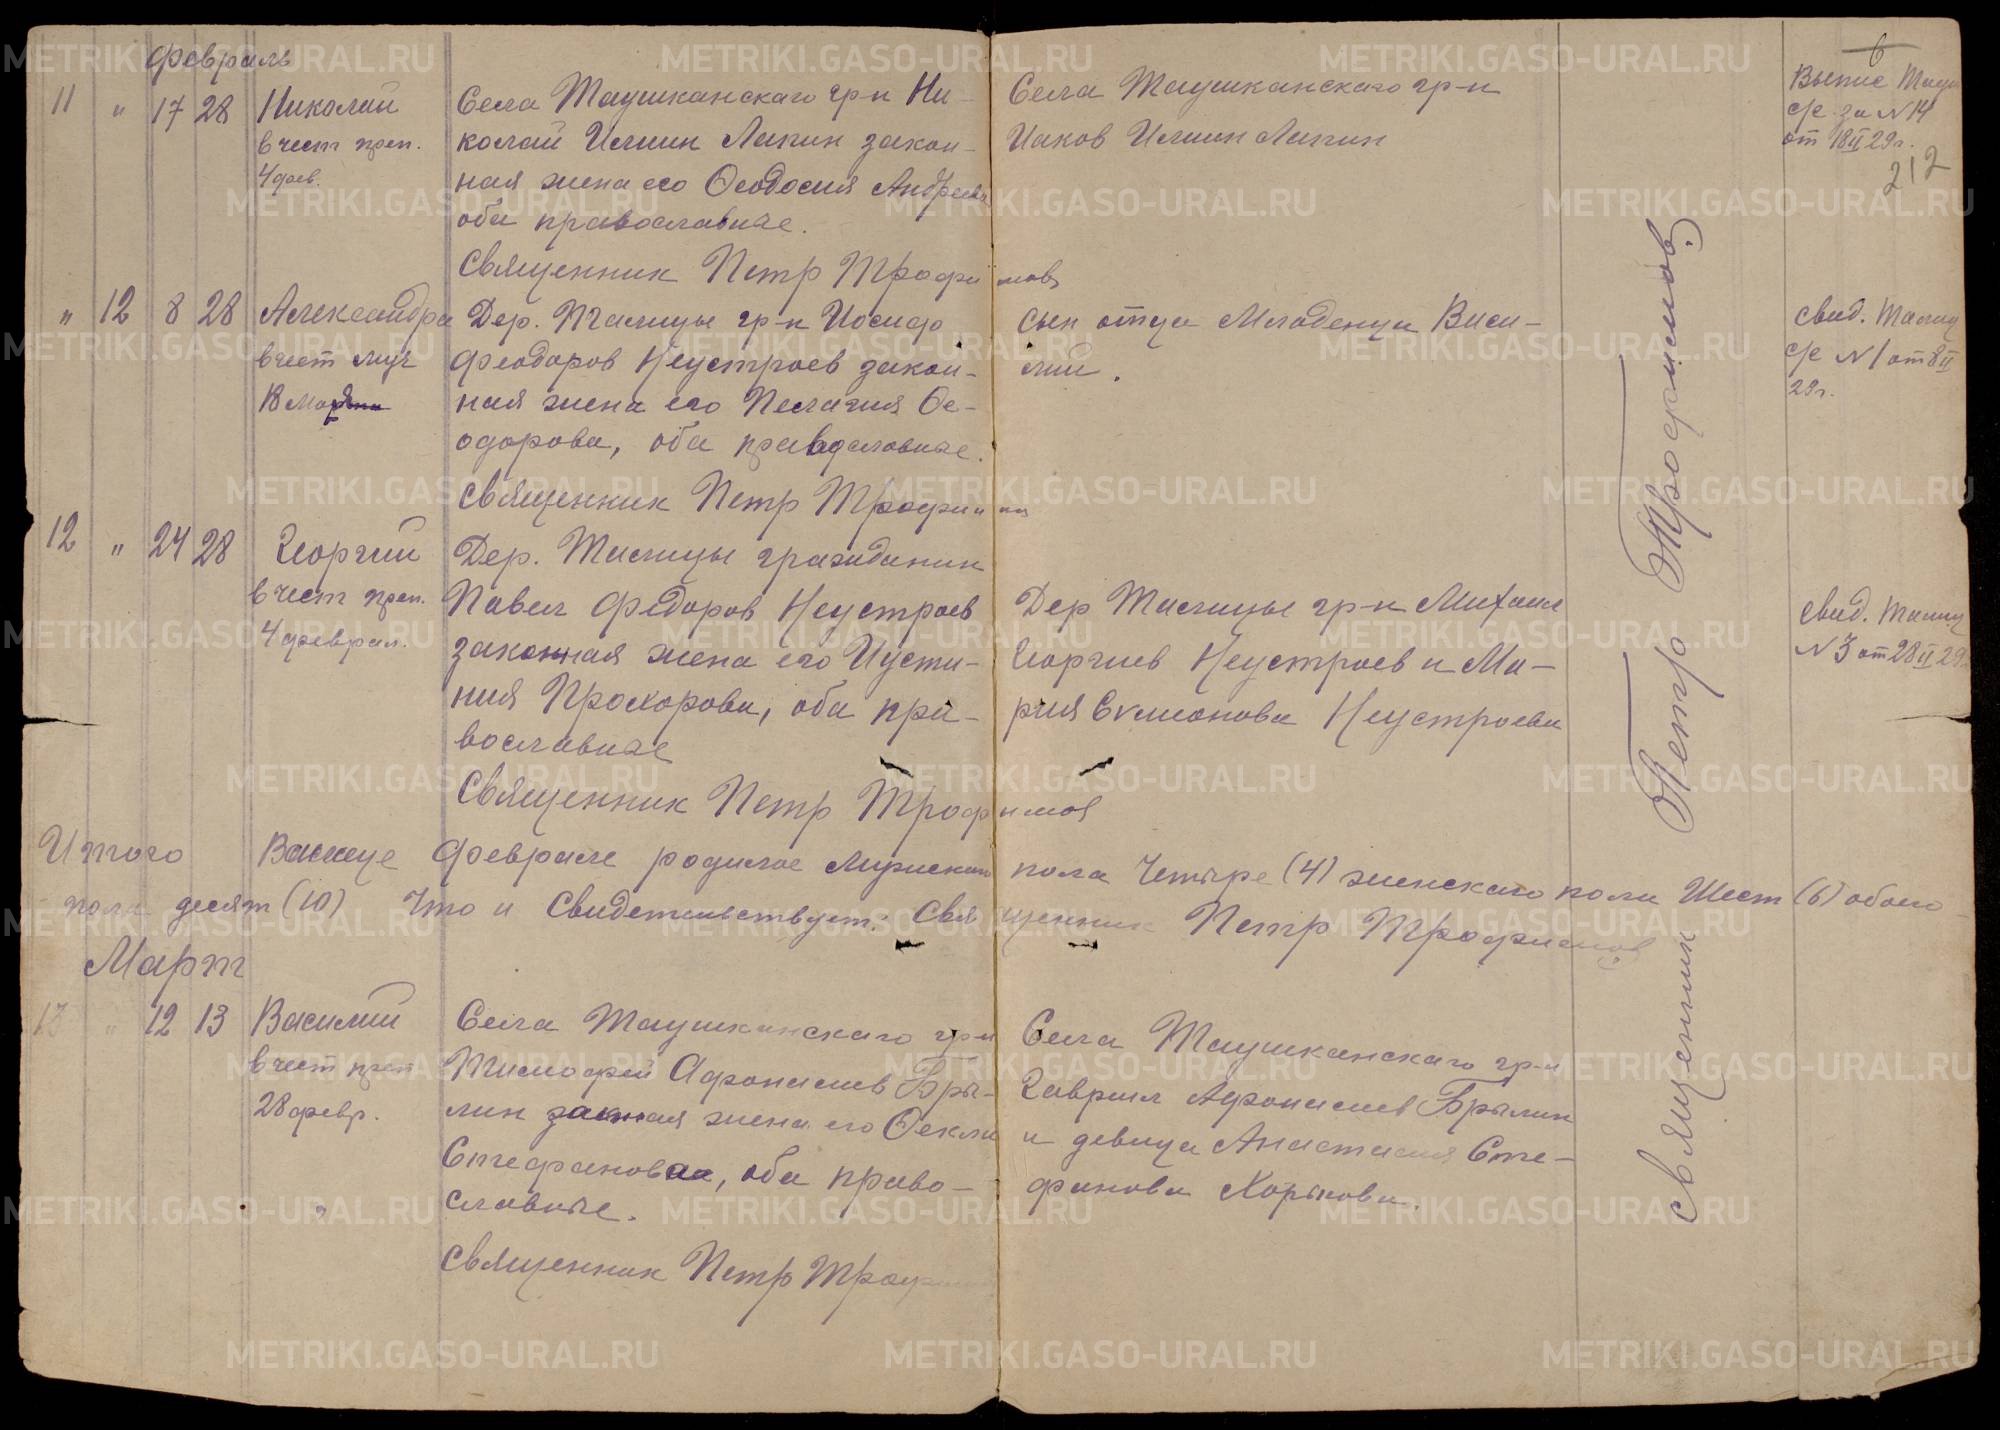 февраль
11 " 17 28 Николай
в чест преп.
4 фев.
Села Таушканскаго гр-н Ни-
колай Илиин Лапин закон-
ная жена его Феодосия Андреева
оба православные.
Священник Петр Трофимов
Села Таушканскаго гр-н
Иаков Илиин Лапин
6
Выпис
с/с за N 14
от 18 II 29 г.
212
" 12 8 28 Александра
в чест муч
18 мар
Дер. Талицы гр-н Иосиф
Феодоров Неустроев закон-
ная жена его Пелагия Фе-
одорова, оба православные.
Священник Петр Трофимов
сын отца младенца Васи-
лий.
Свид. Талиц
с/с N 1 от 8 II
29 г.
12 " 24 28 Георгий
в чест преп.
4 феврал.
Дер. Талицы гражданин
Павел Федоров Неустроев
законная жена его Иусти-
ния Прохорова, оба пра-
вославные
Священник Петр Трофимов
Дер Талицы гр-н Михаил
Георгиев Неустроев и Ма-
рия Симонова Неустроева
Свид. Талиц
N 3 от 28 II 29
Итого В месяце феврале родилос Мужскаго пола Четыре (4) женскаго пола Шест (6) обоего
пола десят (10) Что и Свидетельствует: Священник Петр Трофимов
Март
13 " 12 13 Василий
в чест преп
28 февр.
Села Таушканскаго гр-н
Тимофей Афонасиев Бры-
лин законная жена его Фекла
Стефановна, оба право-
славные.
Священник Петр Трофим
Села Таушканскаго гр-н
Гавриил Афонасиев Брылин
и девица Анастасия Сте-
фанова Хорькова.
Священник Петр Трофимов
METRIKI.GASO-URAL.RU